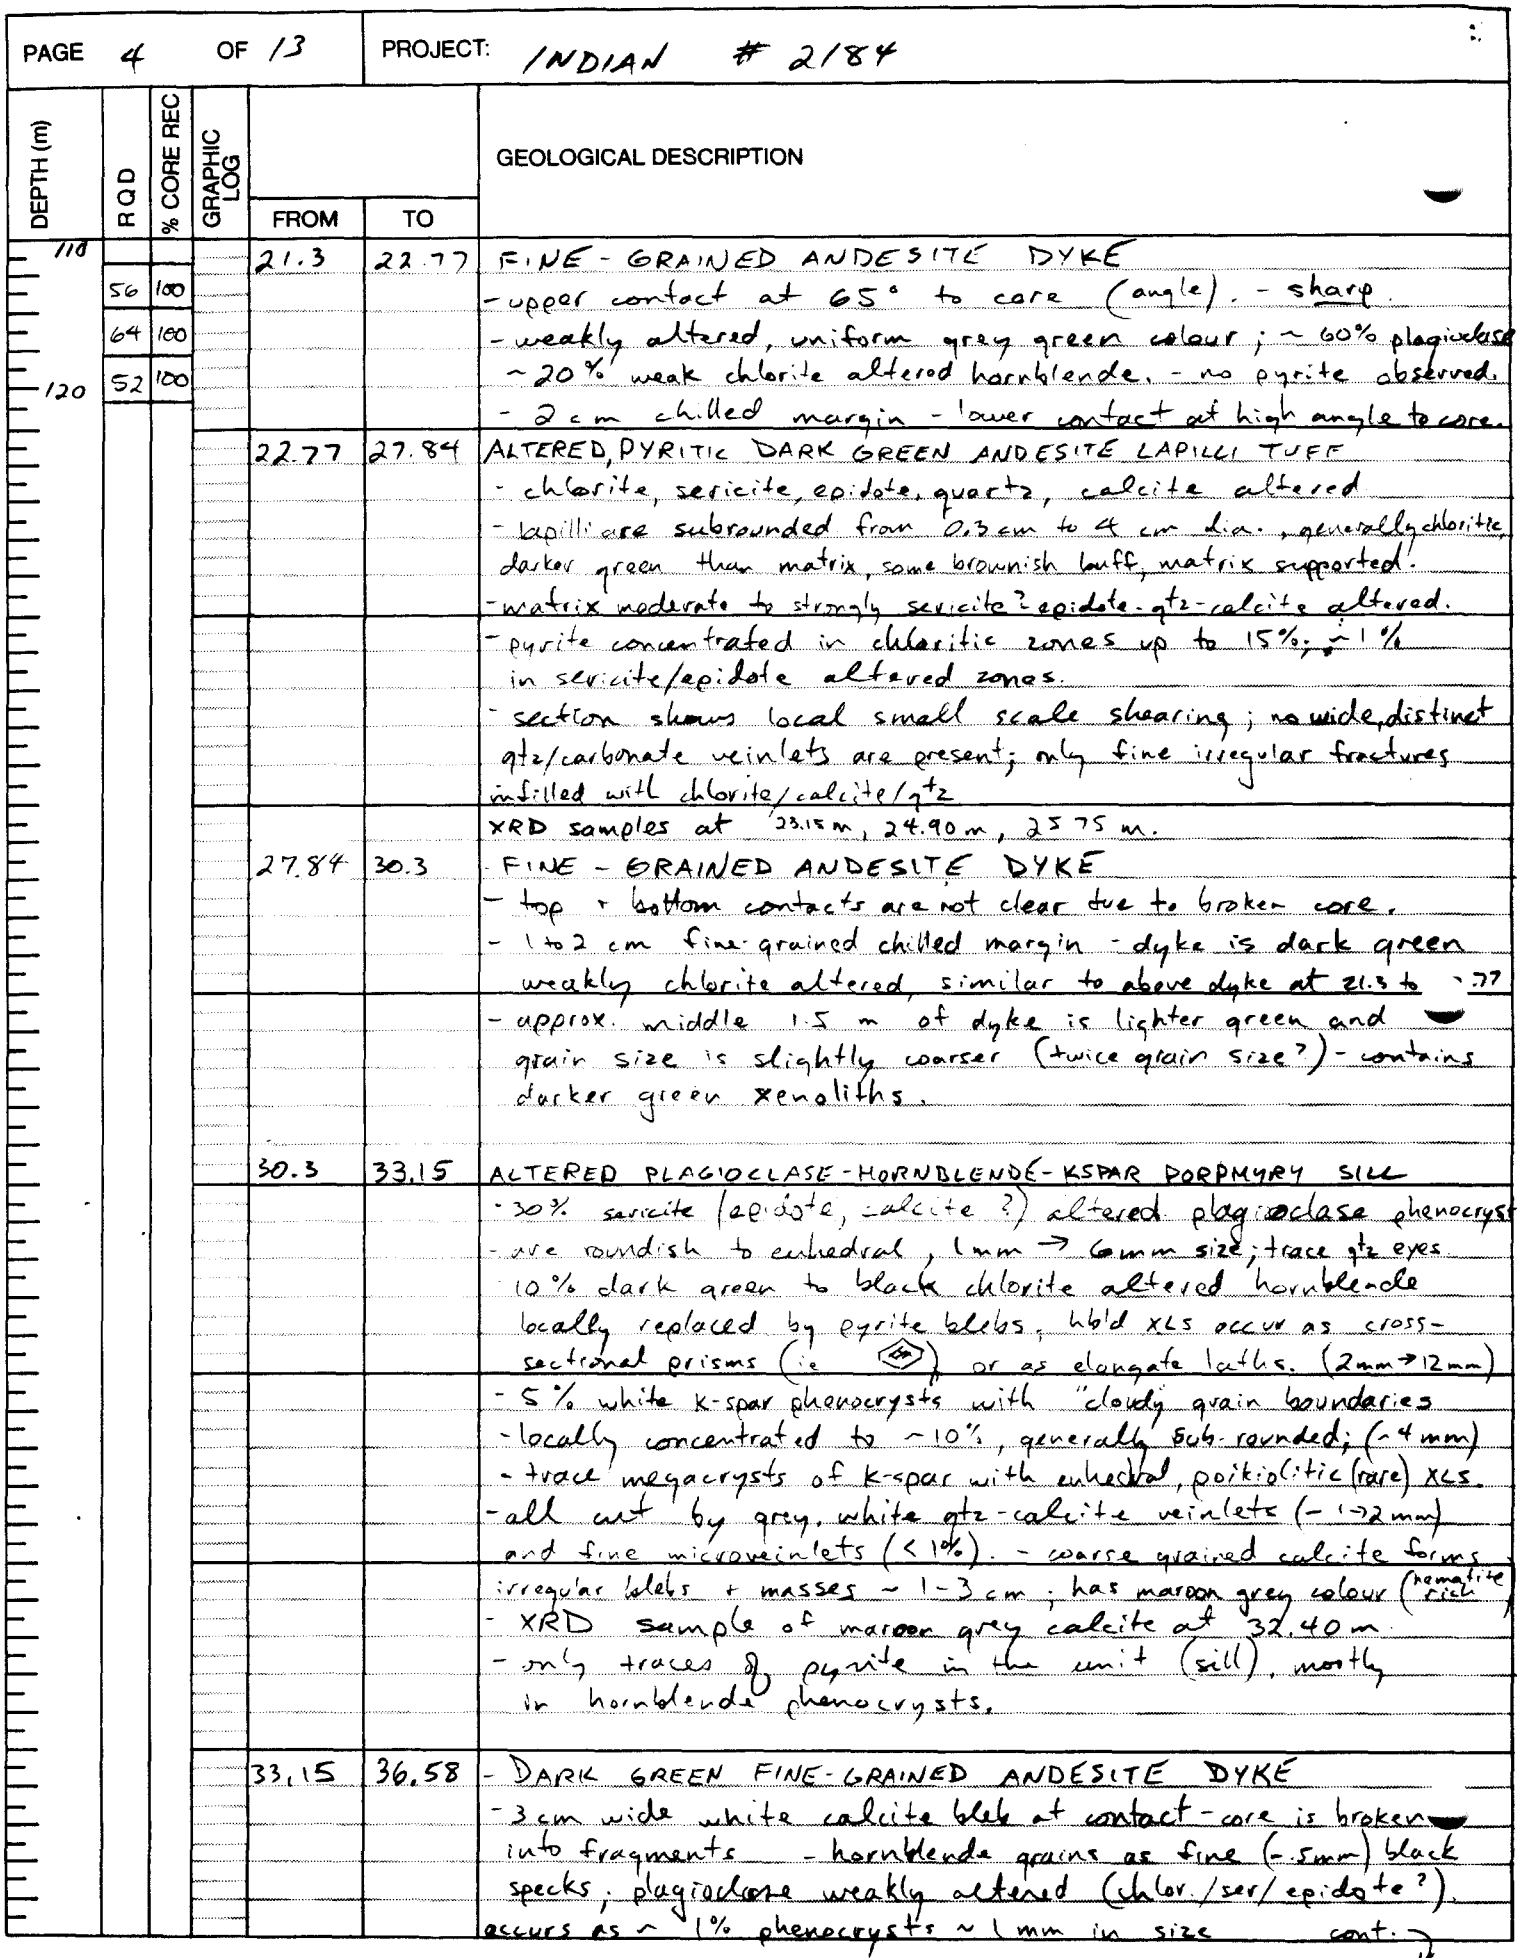 PAGE 4 OF 13 PROJECT: INDIAN # 2184
DEPTH (m) RQD % CORE REC GRAPHIC LOG FROM TO GEOLOGICAL DESCRIPTION
118 21.3 22.77 FINE - GRAINED ANDESITE DYKE
56 100 - upper contact at 65° to core (angle). - sharp.
64 100 - weakly altered, uniform grey green colour ; ~ 60% plagioclase
120 52 100 ~ 20% weak chlorite altered hornblende. - no pyrite observed.
- 2 cm chilled margin - lower contact at high angle to core.
22.77 27.84 ALTERED, PYRITIC DARK GREEN ANDESITE LAPILLI TUFF
- chlorite, sericite, epidote, quartz, calcite altered
- lapilli are subrounded from 0.3 cm to 4 cm dia. , generally chloritic,
darker green than matrix, some brownish buff, matrix supported.
- matrix moderate to strongly sericite?-epidote-qtz-calcite altered.
- pyrite concentrated in chloritic zones up to 15%; ~ 1%
in sericite/epidote altered zones.
- section shows local small scale shearing ; no wide, distinct
qtz/carbonate veinlets are present; only fine irregular fractures
infilled with chlorite/calcite/qtz
XRD samples at 23.15 m, 24.90 m, 25 75 m.
27.84 30.3 - FINE - GRAINED ANDESITE DYKE
- top + bottom contacts are not clear due to broken core.
- 1 to 2 cm fine-grained chilled margin - dyke is dark green
weakly chlorite altered, similar to above dyke at 21.3 to .77
- approx. middle 1.5 m of dyke is lighter green and
grain size is slightly coarser (twice grain size?) - contains
darker green xenoliths.
30.3 33.15 ALTERED PLAGIOCLASE-HORNBLENDE-KSPAR PORPHYRY SILL
- 30% sericite (epidote, calcite ?) altered plagioclase phenocryst
- are roundish to euhedral, 1mm → 6mm size; trace qtz eyes
10% dark green to black chlorite altered hornblende
locally replaced by pyrite blebs, hb'd XLS occur as cross-
sectional prisms (ie ) or as elongate laths. (2mm→12mm)
- 5% white K-spar phenocrysts with "cloudy grain boundaries
- locally concentrated to ~10%, generally sub-rounded; (~4mm)
- trace megacrysts of K-spar with euhedral, poikiolitic (rare) XLS.
- all cut by grey, white qtz-calcite veinlets (~ 1→2mm)
and fine microveinlets (< 1%). - coarse grained calcite forms
irregular blebs + masses ~ 1-3 cm ; has maroon grey colour (hematite rich)
- XRD sample of maroon grey calcite at 32.40 m.
- only traces of pyrite in the unit (sill), mostly
in hornblende phenocrysts.
33.15 36.58 - DARK GREEN FINE-GRAINED ANDESITE DYKE
- 3 cm wide white calcite bleb at contact - core is broken
into fragments - hornblende grains as fine (~.5mm) black
specks ; plagioclase weakly altered (chlor./ser/epidote?).
occurs as ~ 1% phenocrysts ~ 1 mm in size cont.